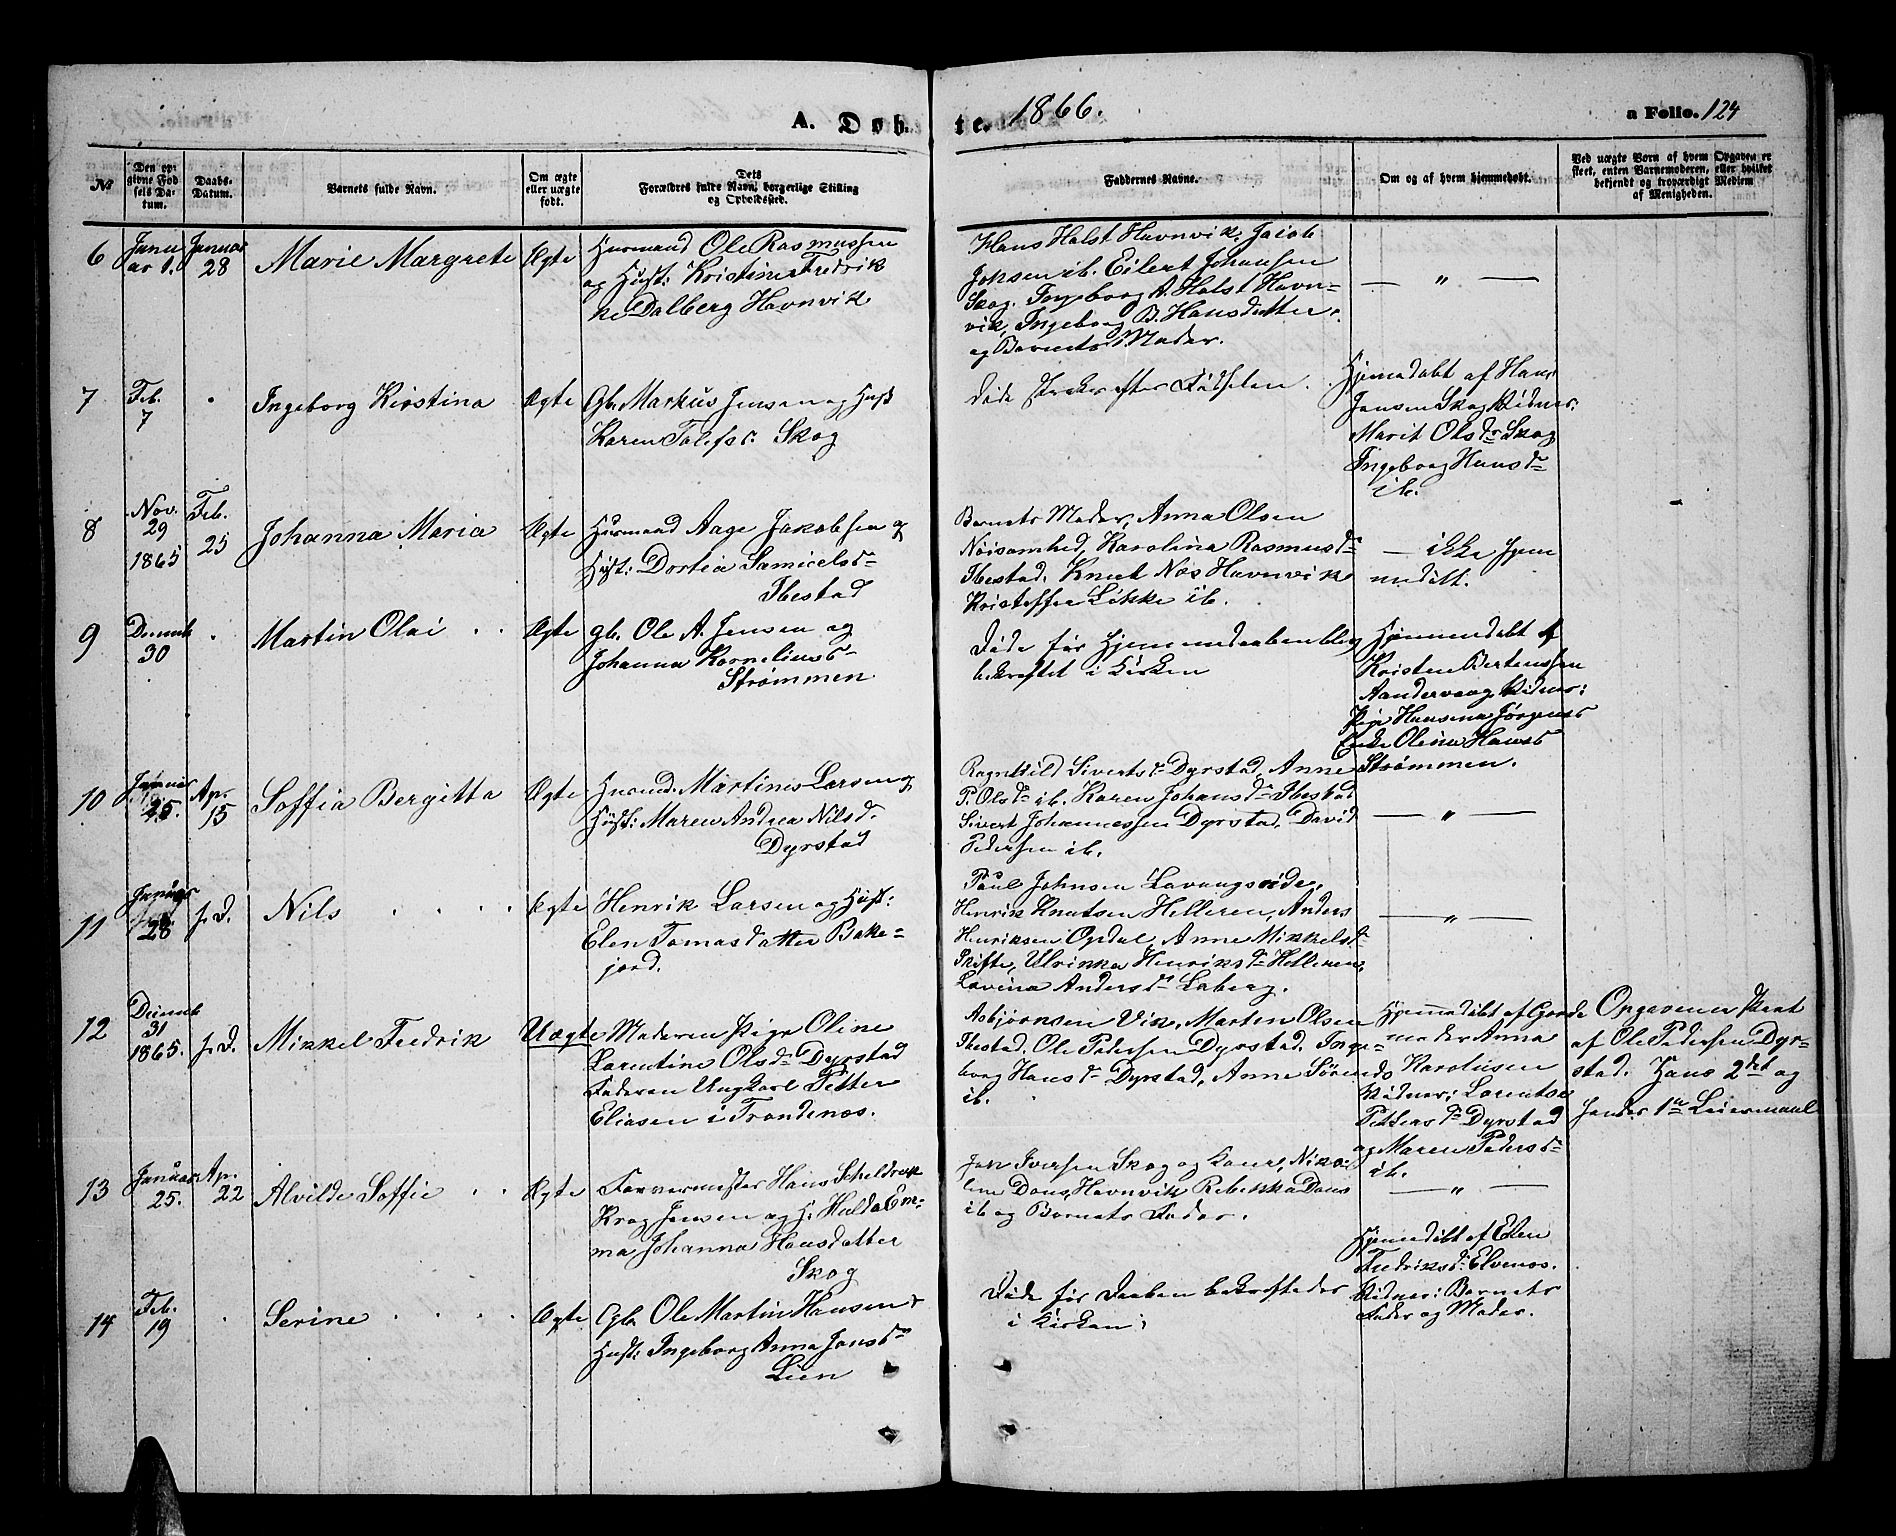 A. Døb-
te. 1866.
a Folio. 124
No
Den op-
givne Fød
sels Da-
tum.
Daabs-
Datum.
Barnets fulde Navn.
Om ægte
eller uægte
født.
Dets
Forældres fulde Navn, borgerlige Stilling
og Opholdssted.
Faddernes Navne.
Om og af hvem hjemmedøbt.
Ved uægte Børn af hvem Opgaven er
skeet, enten Barnemoderen, eller hvilket
bekjendt og troværdigt Medlem
af Menigheden.
6
Janu
ar 1.
Januar
28
Marie Margrete
Ægte
Husmand Ole Rasmussen
og Hust: Kristine Fredrik
ke Dalberg Havnvik
Hans Holst Havnvik, Jacob
Jonsen ib. Eilert Johansen
Skog. Ingeborg A. Holst Havn-
vik, Ingeborg B. Hansdatter
og Barnets Moder.
— " —
7
Feb.
7
Ingeborg Kirstina
Ægte
Gb. Markus Jensen og Hust
Karen Tolefsd: Skog
Døde strax efter Fødselen.
Hjemedøbt af Hans
Jensen Skog Vidner:
Marit Olsdr Skog
Ingeborg Hansd
ib.
8
Nov.
29
1865
Feb.
25
Johanna Maria
Ægte
Husmand Aage Jakobsen og
Hust: Dortea Samuelsd
Ibestad
Barnets Moder, Anna Olsen
Nøisomhed, Karolina Rasmusd
Ibestad. Knut Nos Havnvik
Kristoffer Løkke ib.
— ikke hjem
medøbt.
9
Decemb
30
Martin Olai
Ægte
gb. Ole A. Jensen og
Johanna Korneliusd
Strømmen
Døde før Hjemmedaaben blev
bekræftet i Kirken
Hjemmedøbt af
Kristen Bertensen
Aandervaag Vidner:
Pige Hansina Jørgensd
Enke Olina Hansd
Strømmen.
10
Januar
25.
Apr.
15
Soffia Bergitta
Ægte
Husmd. Martines Larsen og
Hust: Maren Andrea Nilsd.
Dyrstad
Ragnhild Sivertsd Dyrstad, Anne
P. Olsd ib. Karen Johansd Ibestad
Sivert Johannessen Dyrstad, David
Pedersen ib.
— " —
11
Januar
28
s. D.
Nils
Ægte
Henrik Larsen og Hust:
Elen Tomasdatter Bake-
jord.
Paul Johnsen Lavangseide,
Henrik Knutsen Helleren, Anders
Henriksen Opdal, Anne Mikkelsd
Skifte, Ulrikka Henriksd Helleren,
Lovina Andersd Laberg.
— " —
12
Decemb
31
1865.
s. D.
Mikkel Fredrik
Uægte
Moderen Pige Oline
Lorentine Olsd Dyrstad
Faderen Ungkarl Petter
Eliasen i Trondenæs.
Asbjørnsen Vik, Martin Olsen
Ibestad. Ole Pedersen Dyrstad. Inge-
borg Hansd Dyrstad, Anne Sørensd
ib.
Hjemmedøbt af Gjorde
moder Anna
Karolusen
Vidner: Lorentse
Pettersd Dyrstad
og Maren Pedersd
ib.
Opgaven er skeet
af Ole Pedersen Dyr-
stad. Hans 2det og
hendes 1te Leiermaal
13
Januar
25.
Apr.
22
Alvilde Soffie
Ægte
Farvermester Hans Scheldrek
Krog Jensen og H: Hulda Em-
ma Johanna Hansdatter
Skog
Jon Iversen Skog og Kone, Niko-
line Dons Havnvik Rebekka Dons
ib og Barnets Fader.
— " —
14
Feb.
19
Serine
Ægte
Gb. Ole Martin Hansen
Hust: Ingeborg Anna Jonsd
Lien
Døde før Daaben bekræftedes
i Kirken
Hjemedøbt af Elen
Fredriksd: Elvenes.
Vidner: Barnets
Fader og Moder.